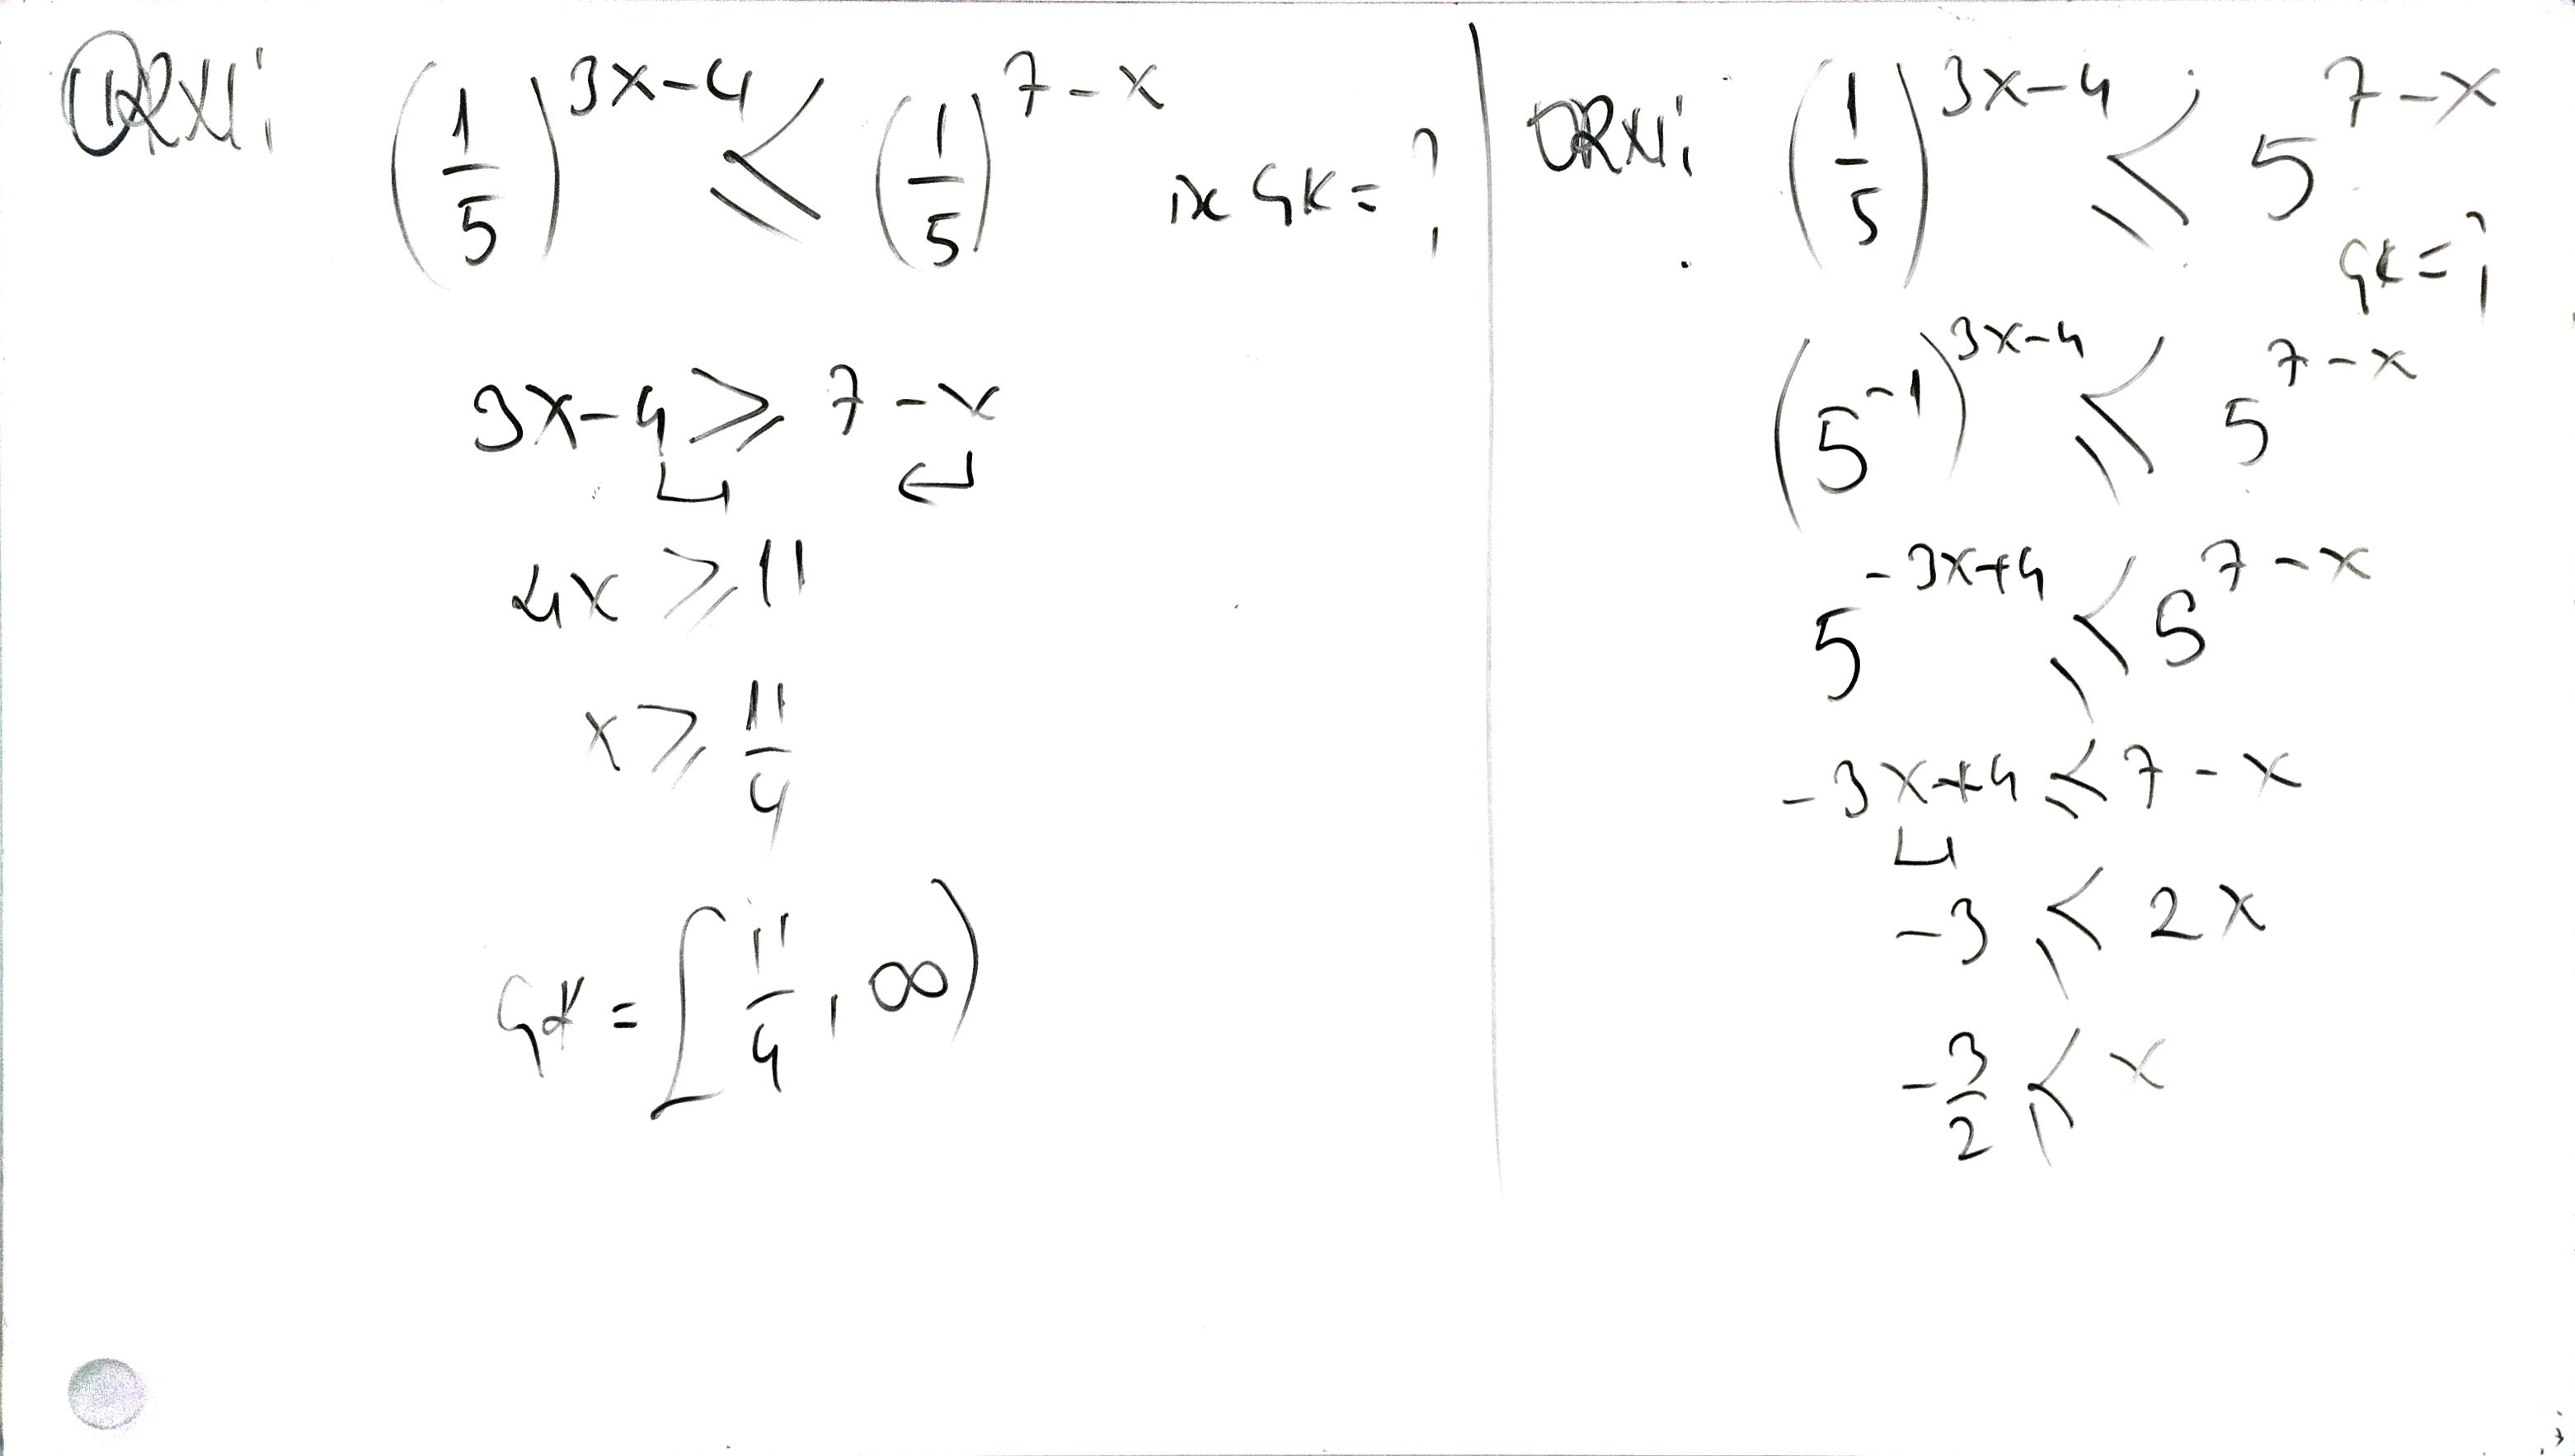 ÖRX1:
(1/5)^(3x-4) ≤ (1/5)^(7-x) ise ÇK = ?
3x-4 ≥ 7-x
4x ≥ 11
x ≥ 11/4
ÇK = [11/4, ∞)
ÖRX1:
(1/5)^(3x-4) ≤ 5^(7-x)
ÇK = ?
(5^-1)^(3x-4) ≤ 5^(7-x)
5^(-3x+4) ≤ 5^(7-x)
-3x+4 ≤ 7-x
-3 ≤ 2x
-3/2 ≤ x